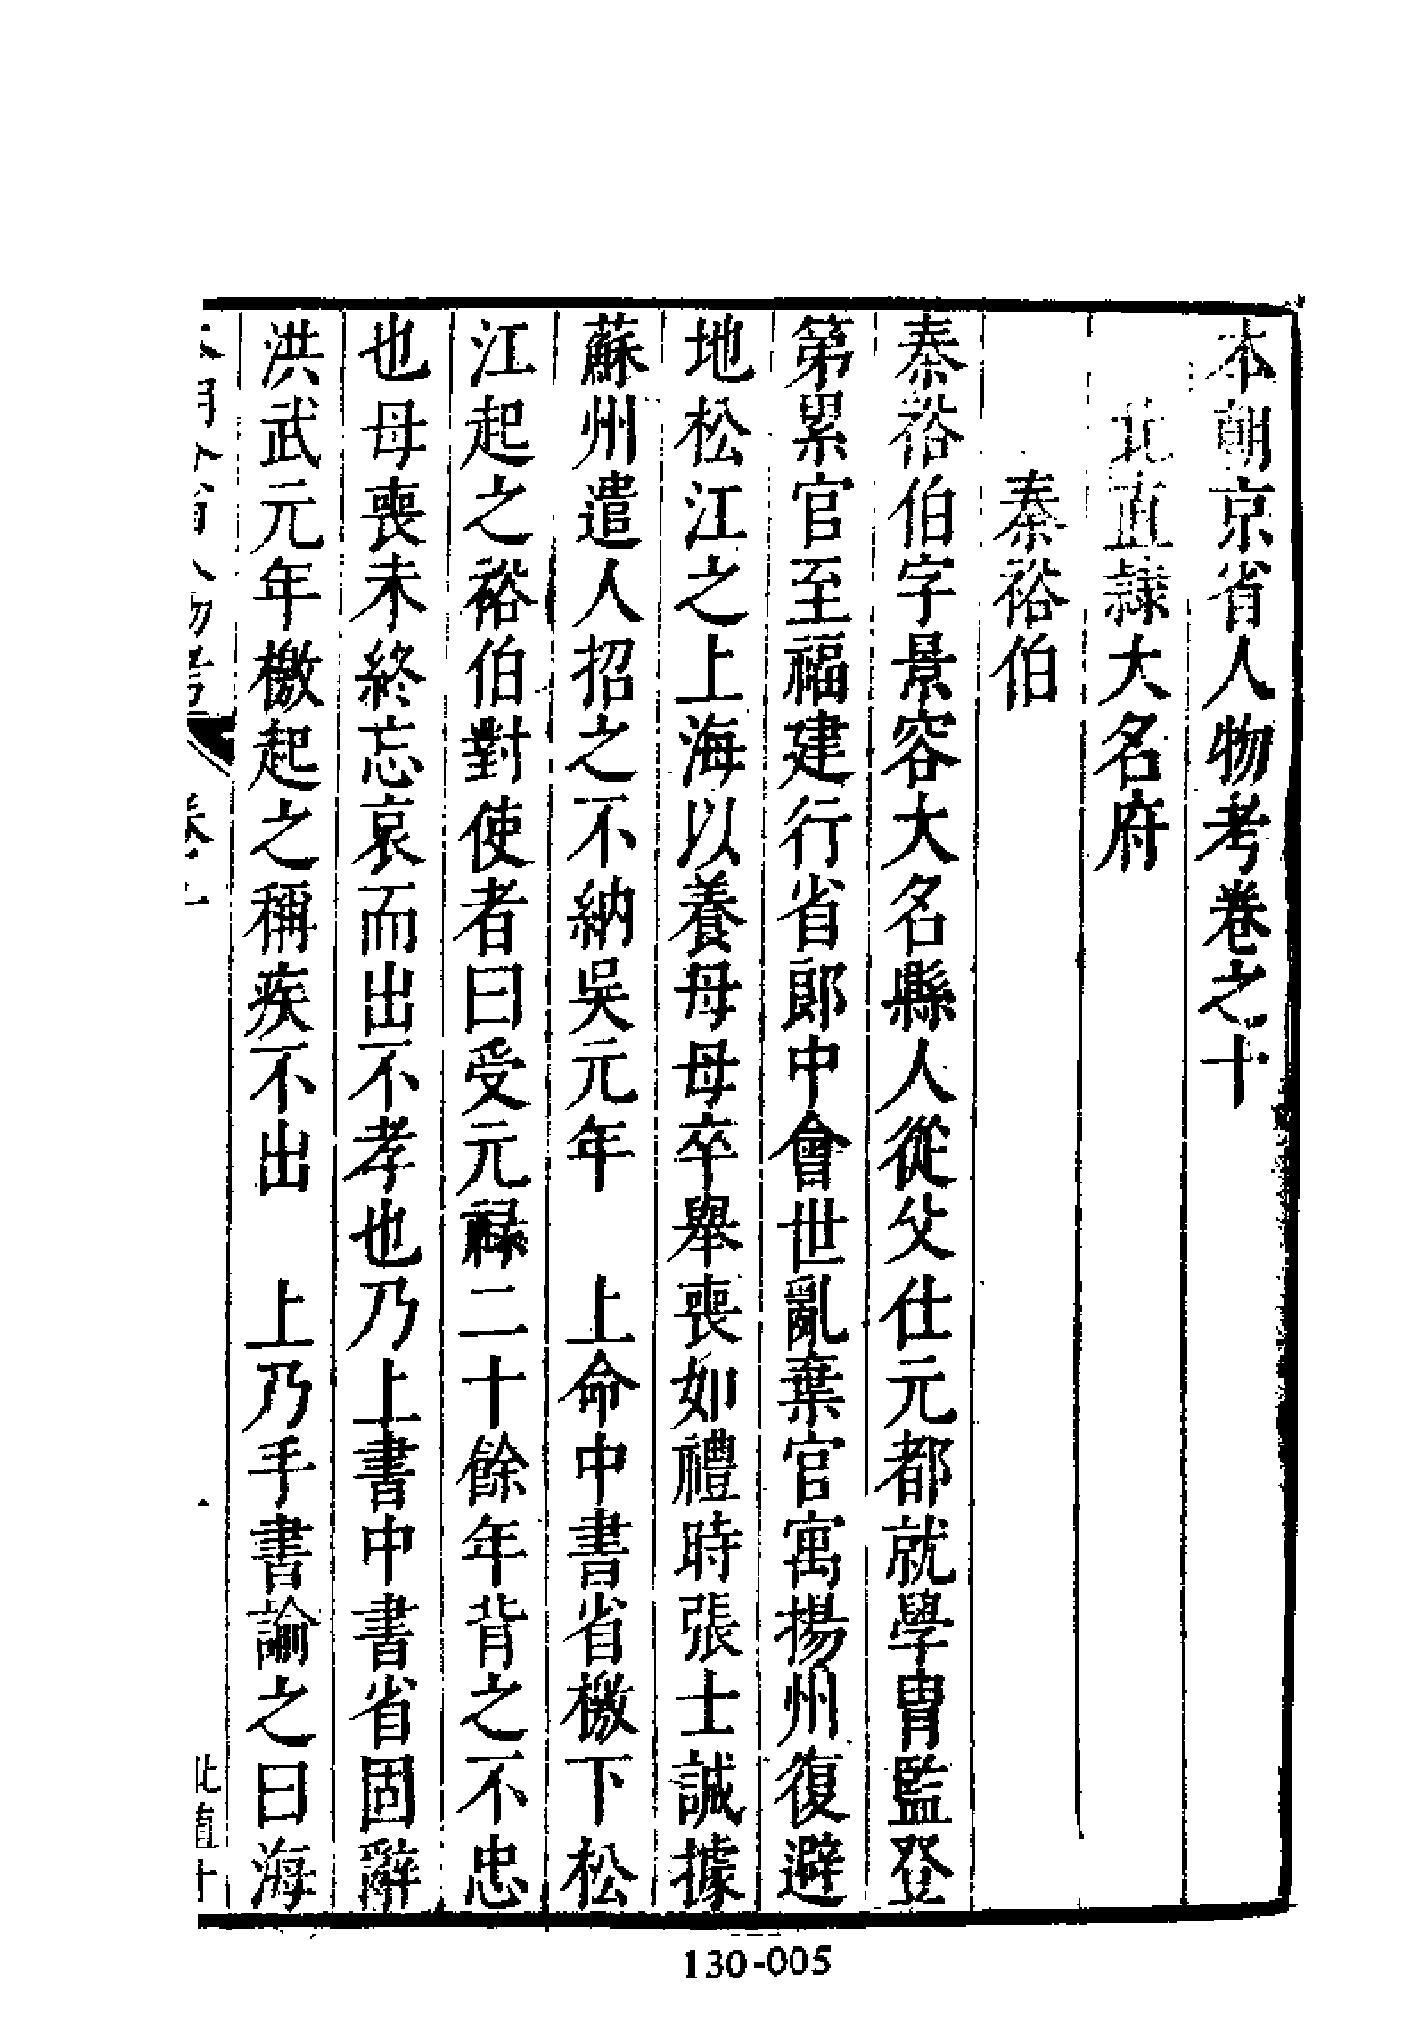 本朝京省人物考卷之十
北直隸大名府
秦裕伯
秦裕伯字景容大名縣人從父仕元都就學胄監登
第累官至福建行省郎中會世亂棄官寓揚州復避
地松江之上海以養母母卒舉喪如禮時張士誠據
蘇州遣人招之不納吳元年　上命中書省檄下松
江起之裕伯對使者曰受元祿二十餘年背之不忠
也母喪未終忘哀而出不孝也乃上書中書省固辭
洪武元年檄起之稱疾不出　上乃手書諭之曰海
130-005